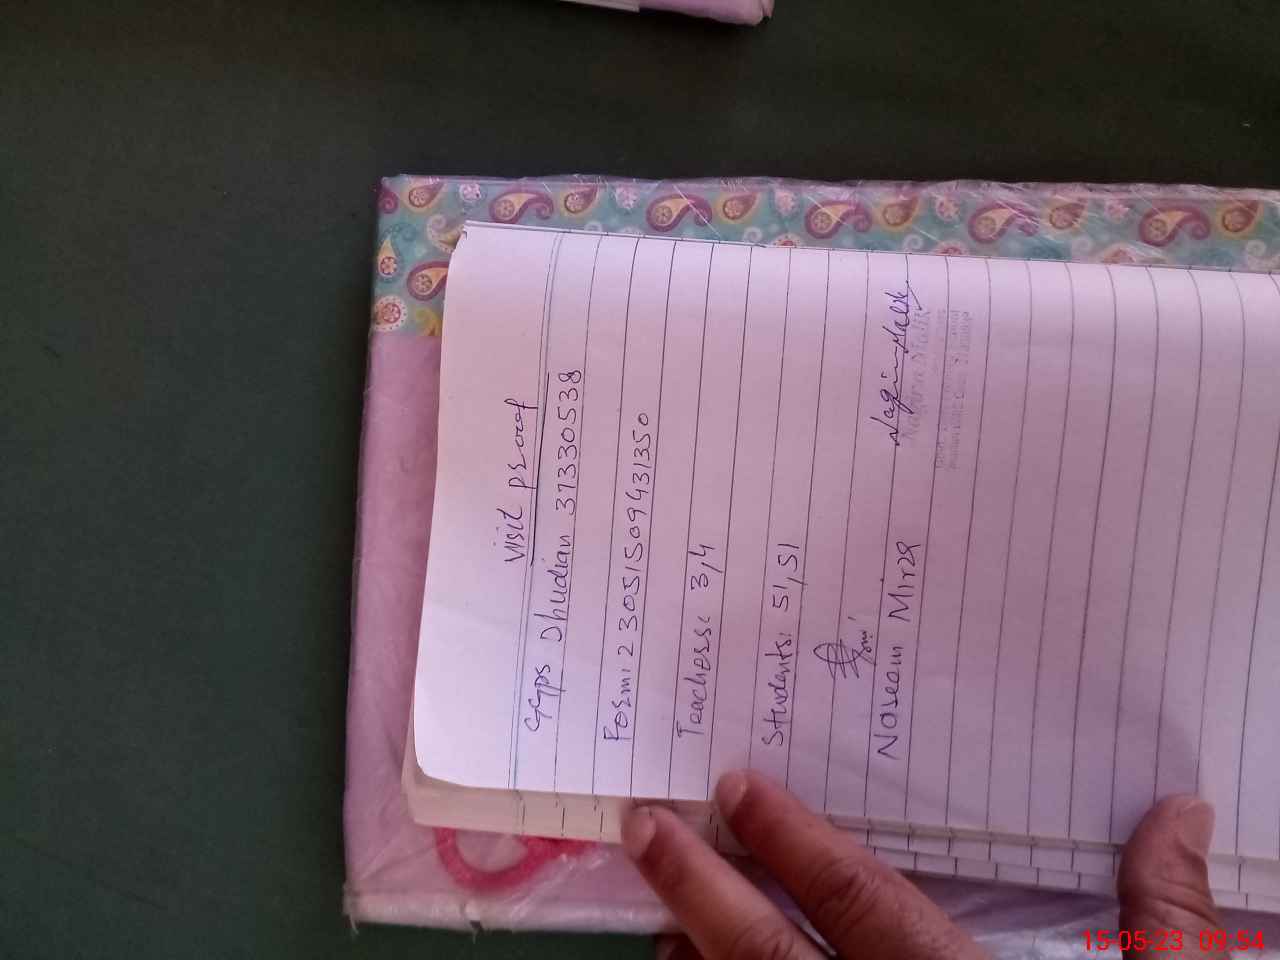 visit proof
GGPS Dhudian 37330538
Form: 2 30515099431350
Teachers: 3,4
Students: 51,51
Naseem Mirza
Nagina Malik
Nagina Malik
15-05-23 09:54